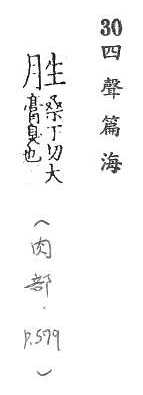 30四聲篇海
胜桑丁切大
膏臭也
(肉部·P.579)